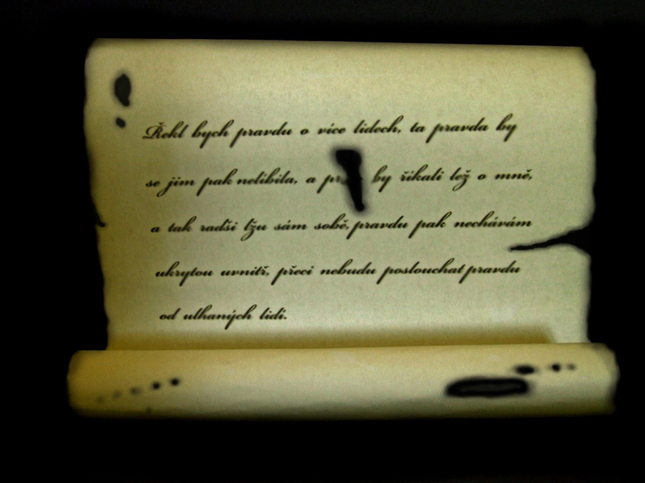 Řekl bych pravdu o více lidech, ta pravda by
se jim pak nelíbila, a by říkali lež o mně,
a tak radši lžu sám sobě, pravdu pak nechávám
ukrytou uvnitř, přeci nebudu poslouchat pravdu
od ulhaných lidí.